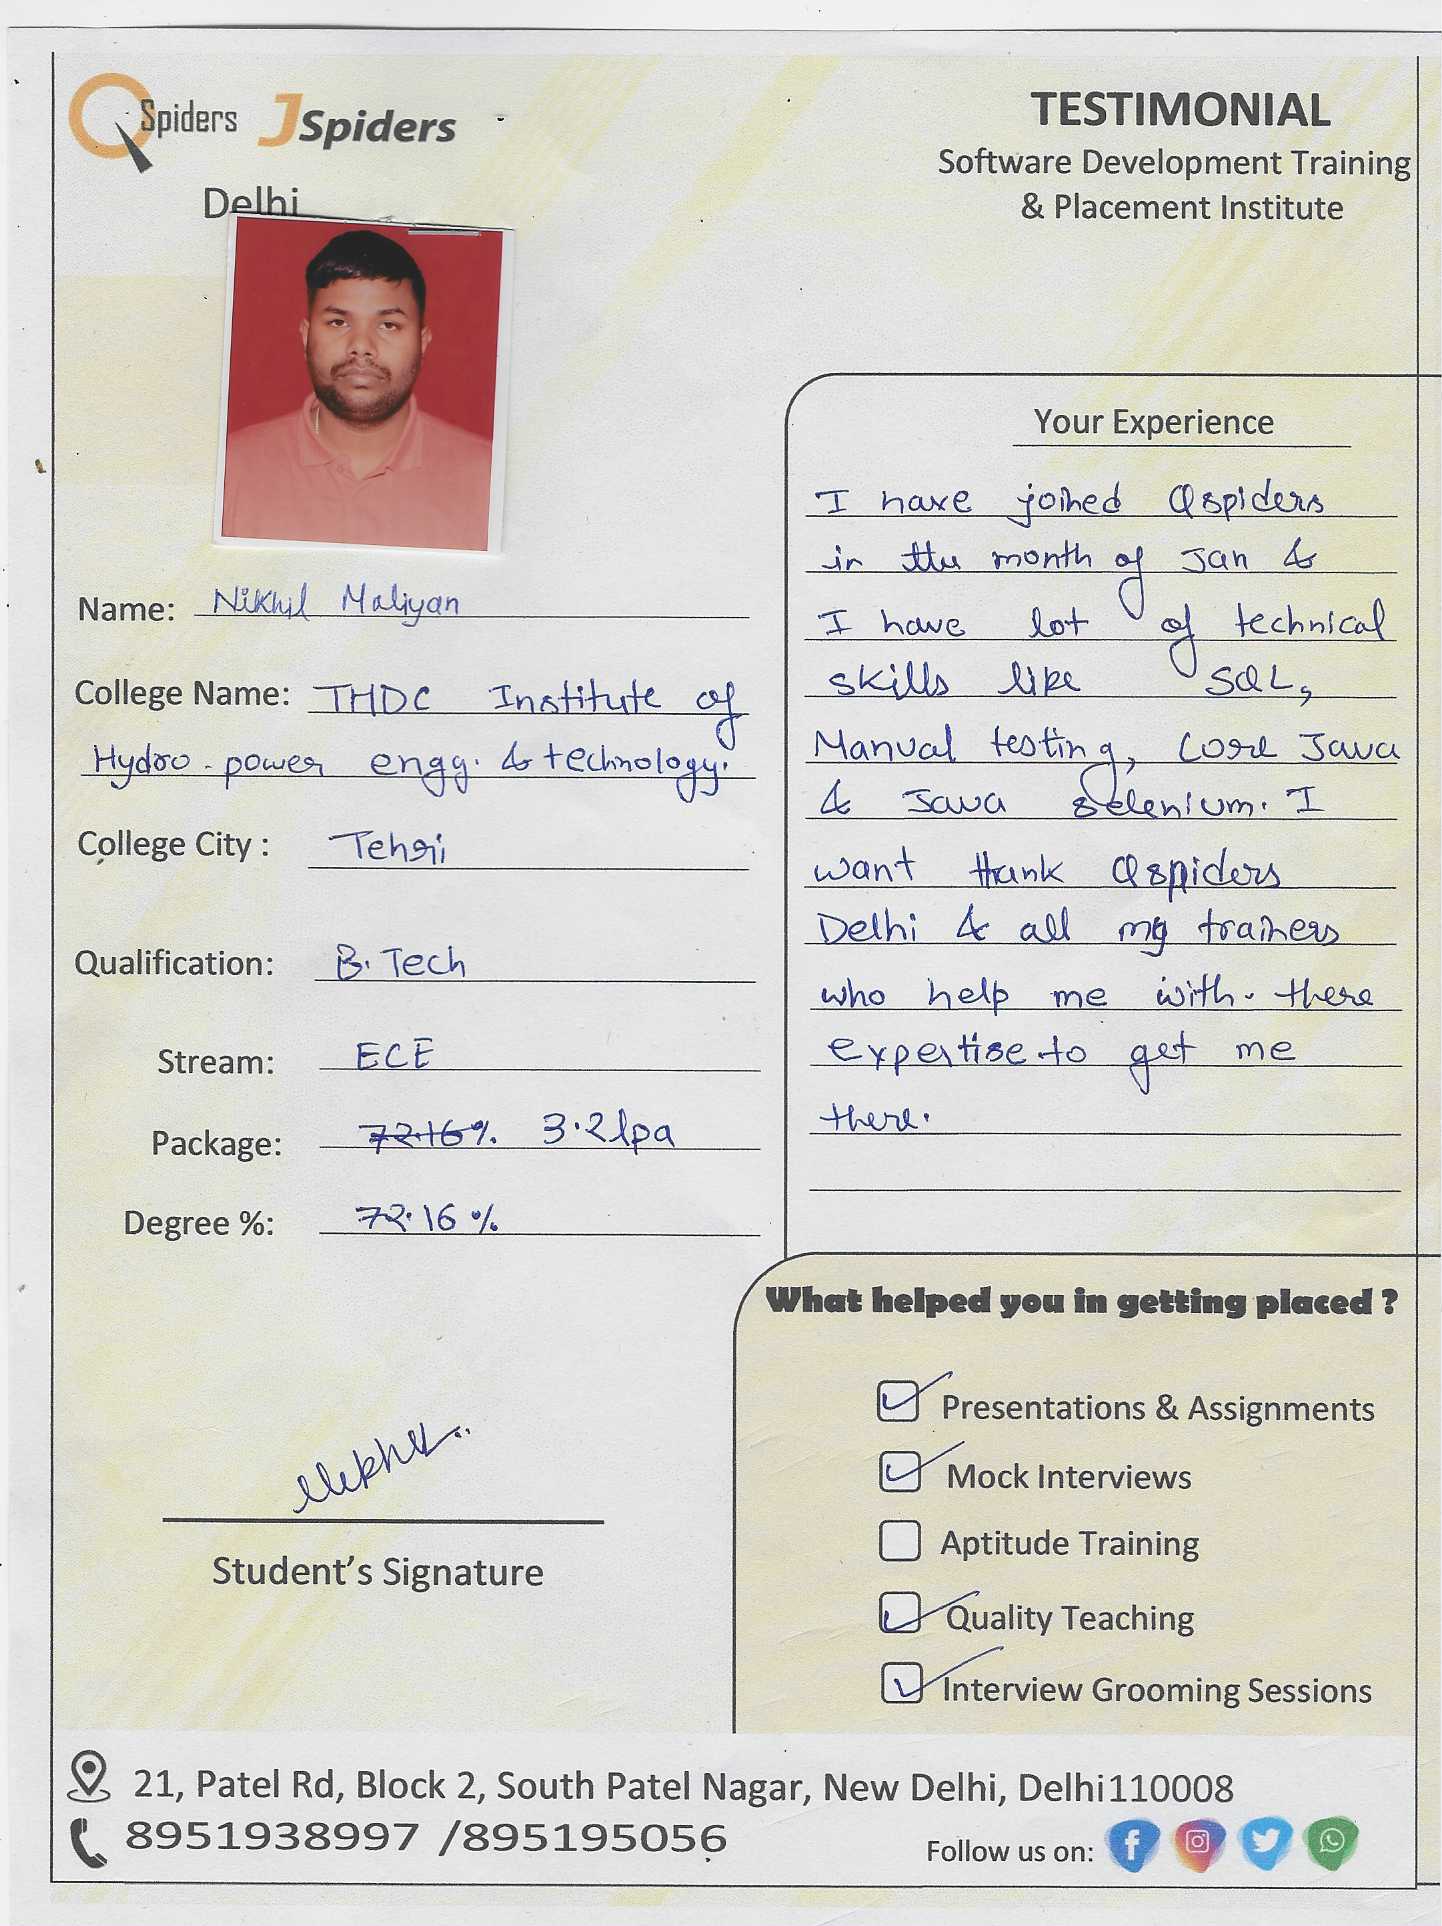 QSpiders JSpiders
Delhi
TESTIMONIAL
Software Development Training
& Placement Institute
Name: Nikhil Maliyan
College Name: THDC Institute of
Hydro-power engg. & technology.
College City : Tehri
Qualification: B.Tech
Stream: ECE
Package: 72.16% 3.2lpa
Degree %: 72.16 %
Student's Signature
Your Experience
I have joined Qspiders
in the month of Jan &
I have lot of technical
skills like SQL,
Manual testing, Core Java
& Java selenium. I
want thank Qspiders
Delhi & all my trainers
who help me with. there
expertise to get me
there.
What helped you in getting placed ?
Presentations & Assignments
Mock Interviews
Aptitude Training
Quality Teaching
Interview Grooming Sessions
21, Patel Rd, Block 2, South Patel Nagar, New Delhi, Delhi110008
8951938997 /895195056
Follow us on: